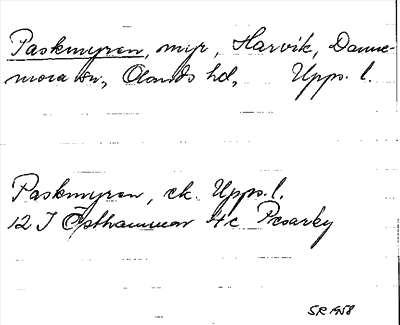 Paskmyren, myr, Harvik, Danne-
mora sn, Olands hd, Upps. l.
Paskmyren, ek. Upps. l.
12 I Östhammar 4c
SR 1958